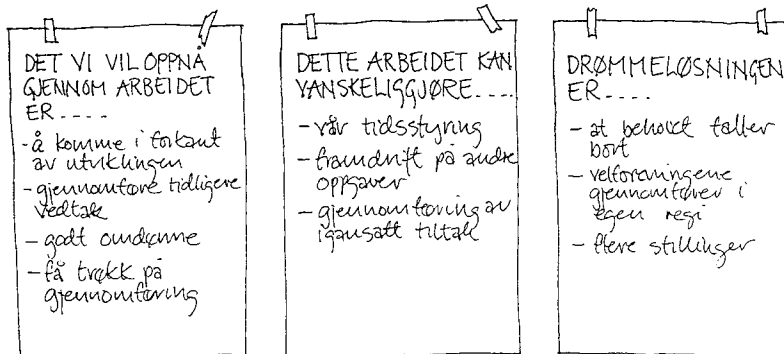 DET VI VIL OPPNÅ
GJENNOM ARBEIDET
ER....
- å komme i forkant
av utviklingen
- gjennomføre tidligere
vedtak
- godt omdømme
- få trøkk på
gjennomføring
DETTE ARBEIDET KAN
VANSKELIGGJØRE....
- vår tidsstyring
- framdrift på andre
oppgaver
- gjennomføring av
igangsatt tiltak
DRØMMELØSNINGEN
ER....
- at behovet faller
bort
- velforeningene
gjennomfører i
egen regi
- flere stillinger